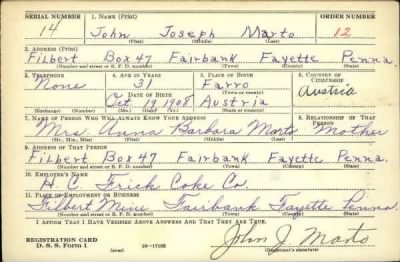 SERIAL NUMBER 1. NAME (Print) ORDER NUMBER
14 John Joseph Marto 12
(First) (Middle) (Last)
2. ADDRESS (Print)
Filbert Box 47 Fairbank Fayette Penna.
(Number and street or R. F. D. number) (Town) (County) (State)
3. TELEPHONE 4. AGE IN YEARS 5. PLACE OF BIRTH 6. COUNTRY OF CITIZENSHIP
None 31 Farro Austria
DATE OF BIRTH (Town or county)
Oct. 19 1908 Austria
(Mo.) (Day) (Yr.) (State or country)
7. NAME OF PERSON WHO WILL ALWAYS KNOW YOUR ADDRESS 8. RELATIONSHIP OF THAT PERSON
Mrs. Anna Barbara Marto Mother
(Mr., Mrs., Miss) (First) (Middle) (Last)
9. ADDRESS OF THAT PERSON
Filbert Box 47 Fairbank Fayette Penna.
(Number and street or R. F. D. number) (Town) (County) (State)
10. EMPLOYER'S NAME
H. C. Frick Coke Co.
11. PLACE OF EMPLOYMENT OR BUSINESS
Filbert Mine Fairbank Fayette Penna.
(Number and street or R. F. D. number) (Town) (County) (State)
I AFFIRM THAT I HAVE VERIFIED ABOVE ANSWERS AND THAT THEY ARE TRUE.
REGISTRATION CARD John J. Marto
D. S. S. Form 1 (over) 16—17105 (Registrant's signature)